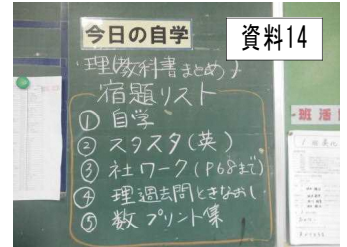 今日の自学
資料14
・理(教科書まとめ)
宿題リスト
① 自学
② スタスタ(英)
③ 社ワーク(P68まで)
④ 理過去問ときなおし
⑤ 数プリント集
班活